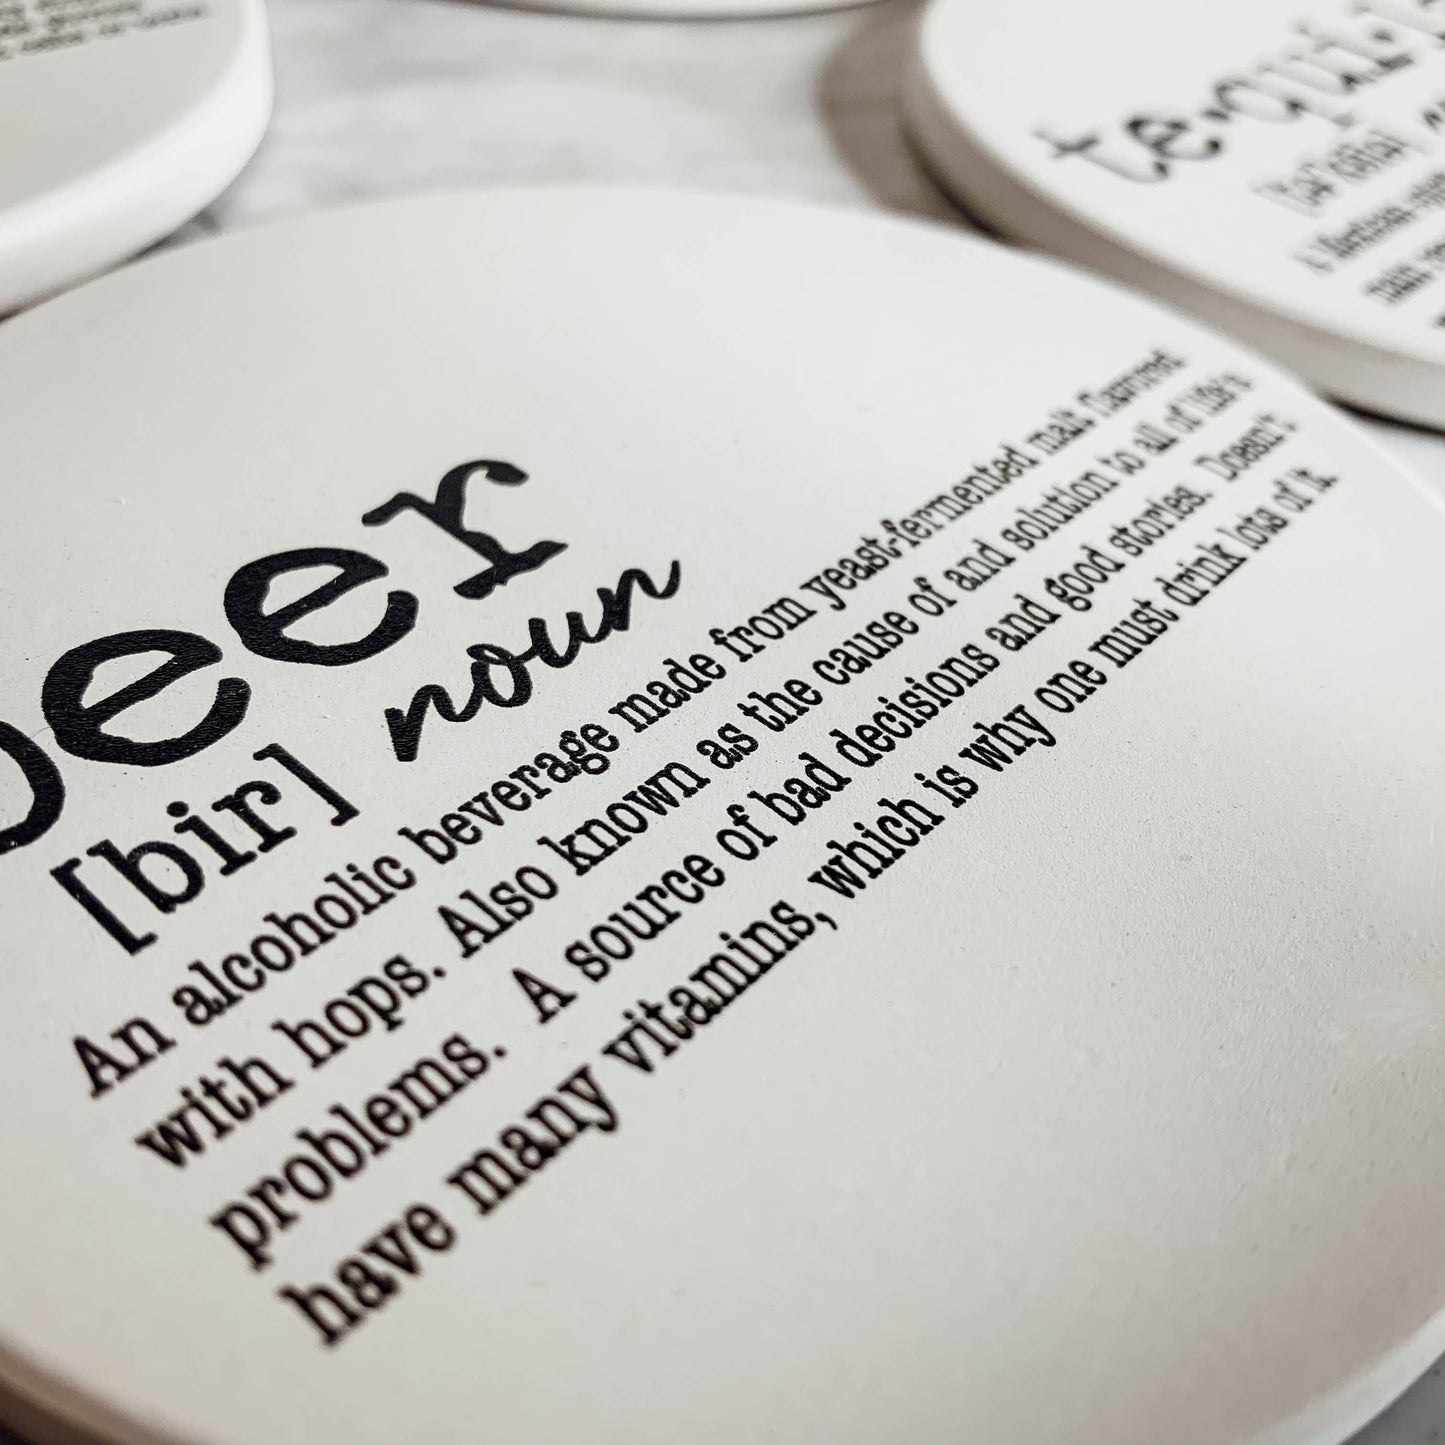 beer
[bir] noun
An alcoholic beverage made from yeast-fermented malt flavored
with hops. Also known as the cause of and solution to all of life's
problems. A source of bad decisions and good stories. Doesn't
have many vitamins, which is why one must drink lots of it.
te·qui·l
A Mexican